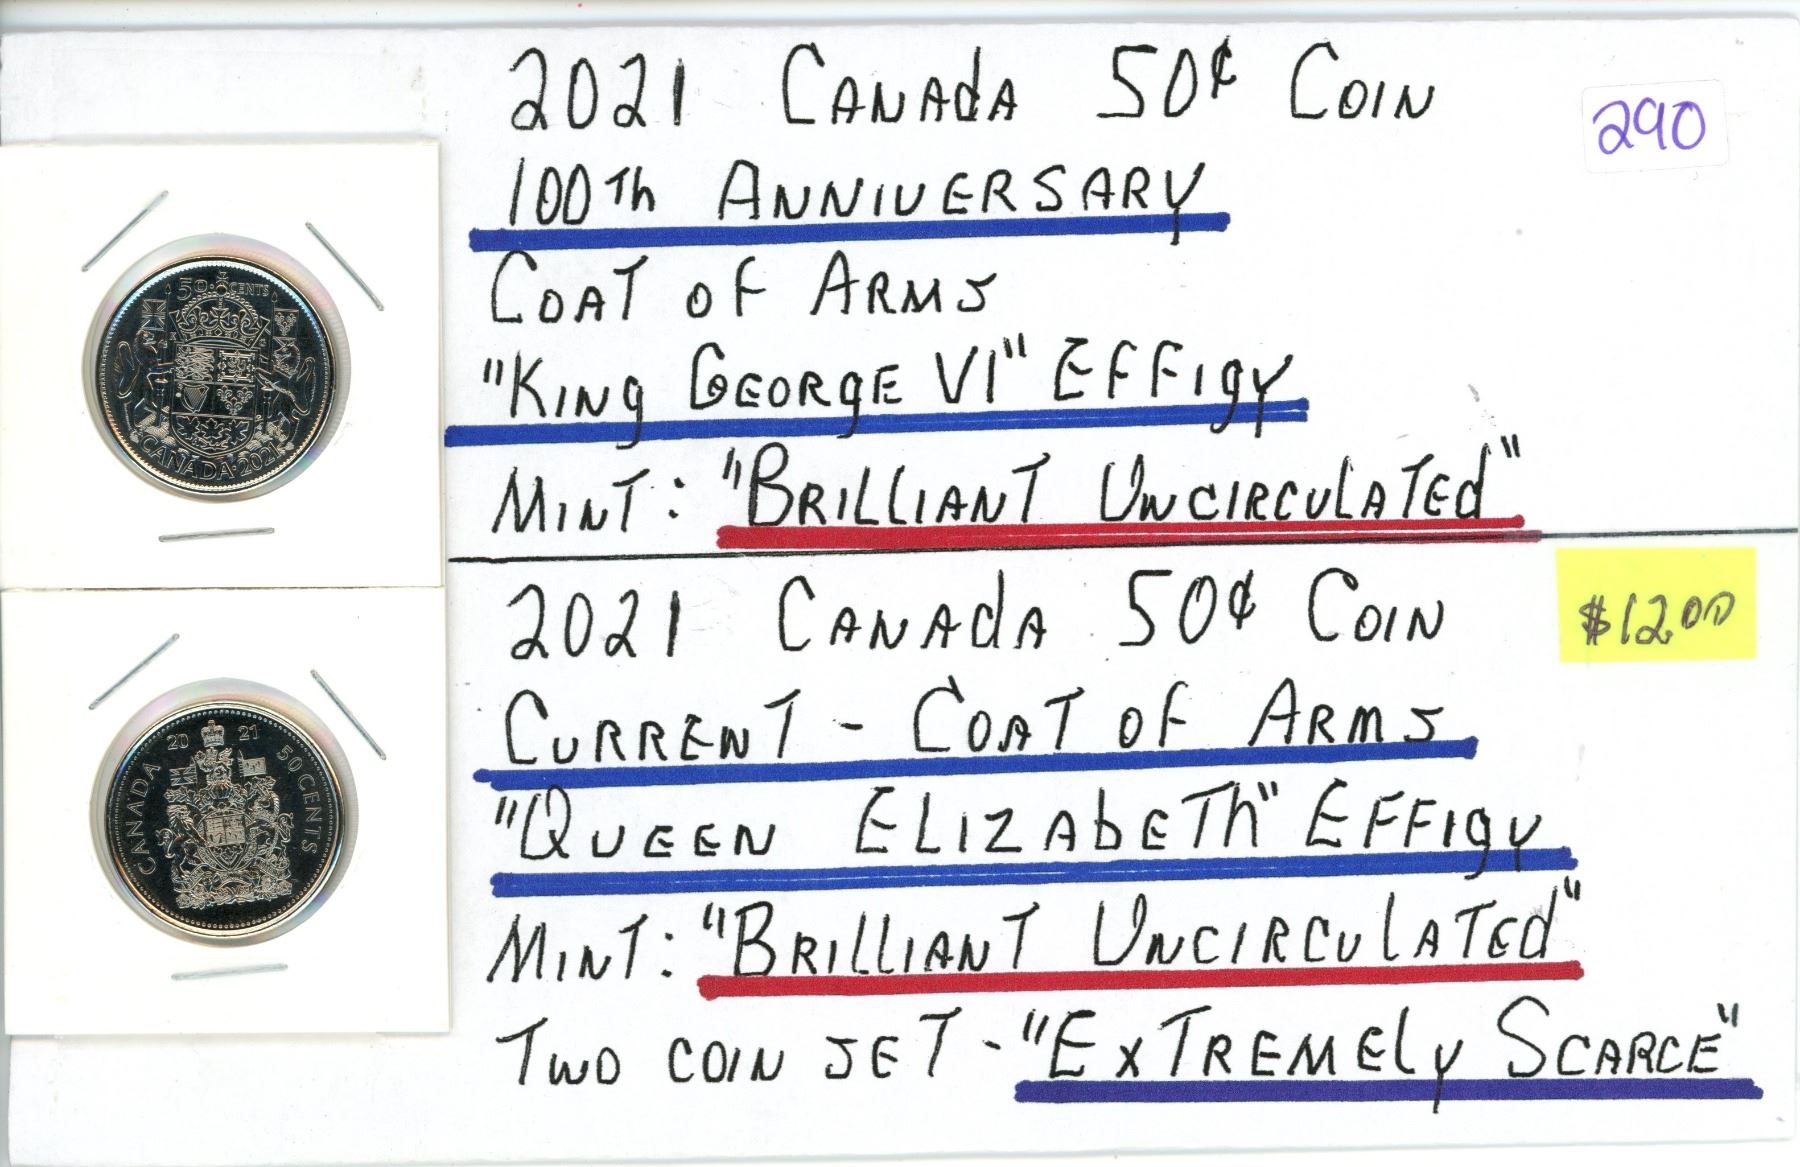 2021 CANADA 50¢ COIN
290
100Th ANNIVERSARY
COAT OF ARMS
"KING GEORGE VI" EFFIGY
MINT: "BRILLIANT UNCIRCULATED"
2021 CANADA 50¢ COIN
$12.00
CURRENT - COAT OF ARMS
"QUEEN ELIZABETH" EFFIGY
MINT: "BRILLIANT UNCIRCULATED"
TWO COIN SET - "EXTREMELY SCARCE"
50 CENTS
CANADA 2021
20 21
CANADA
50 CENTS